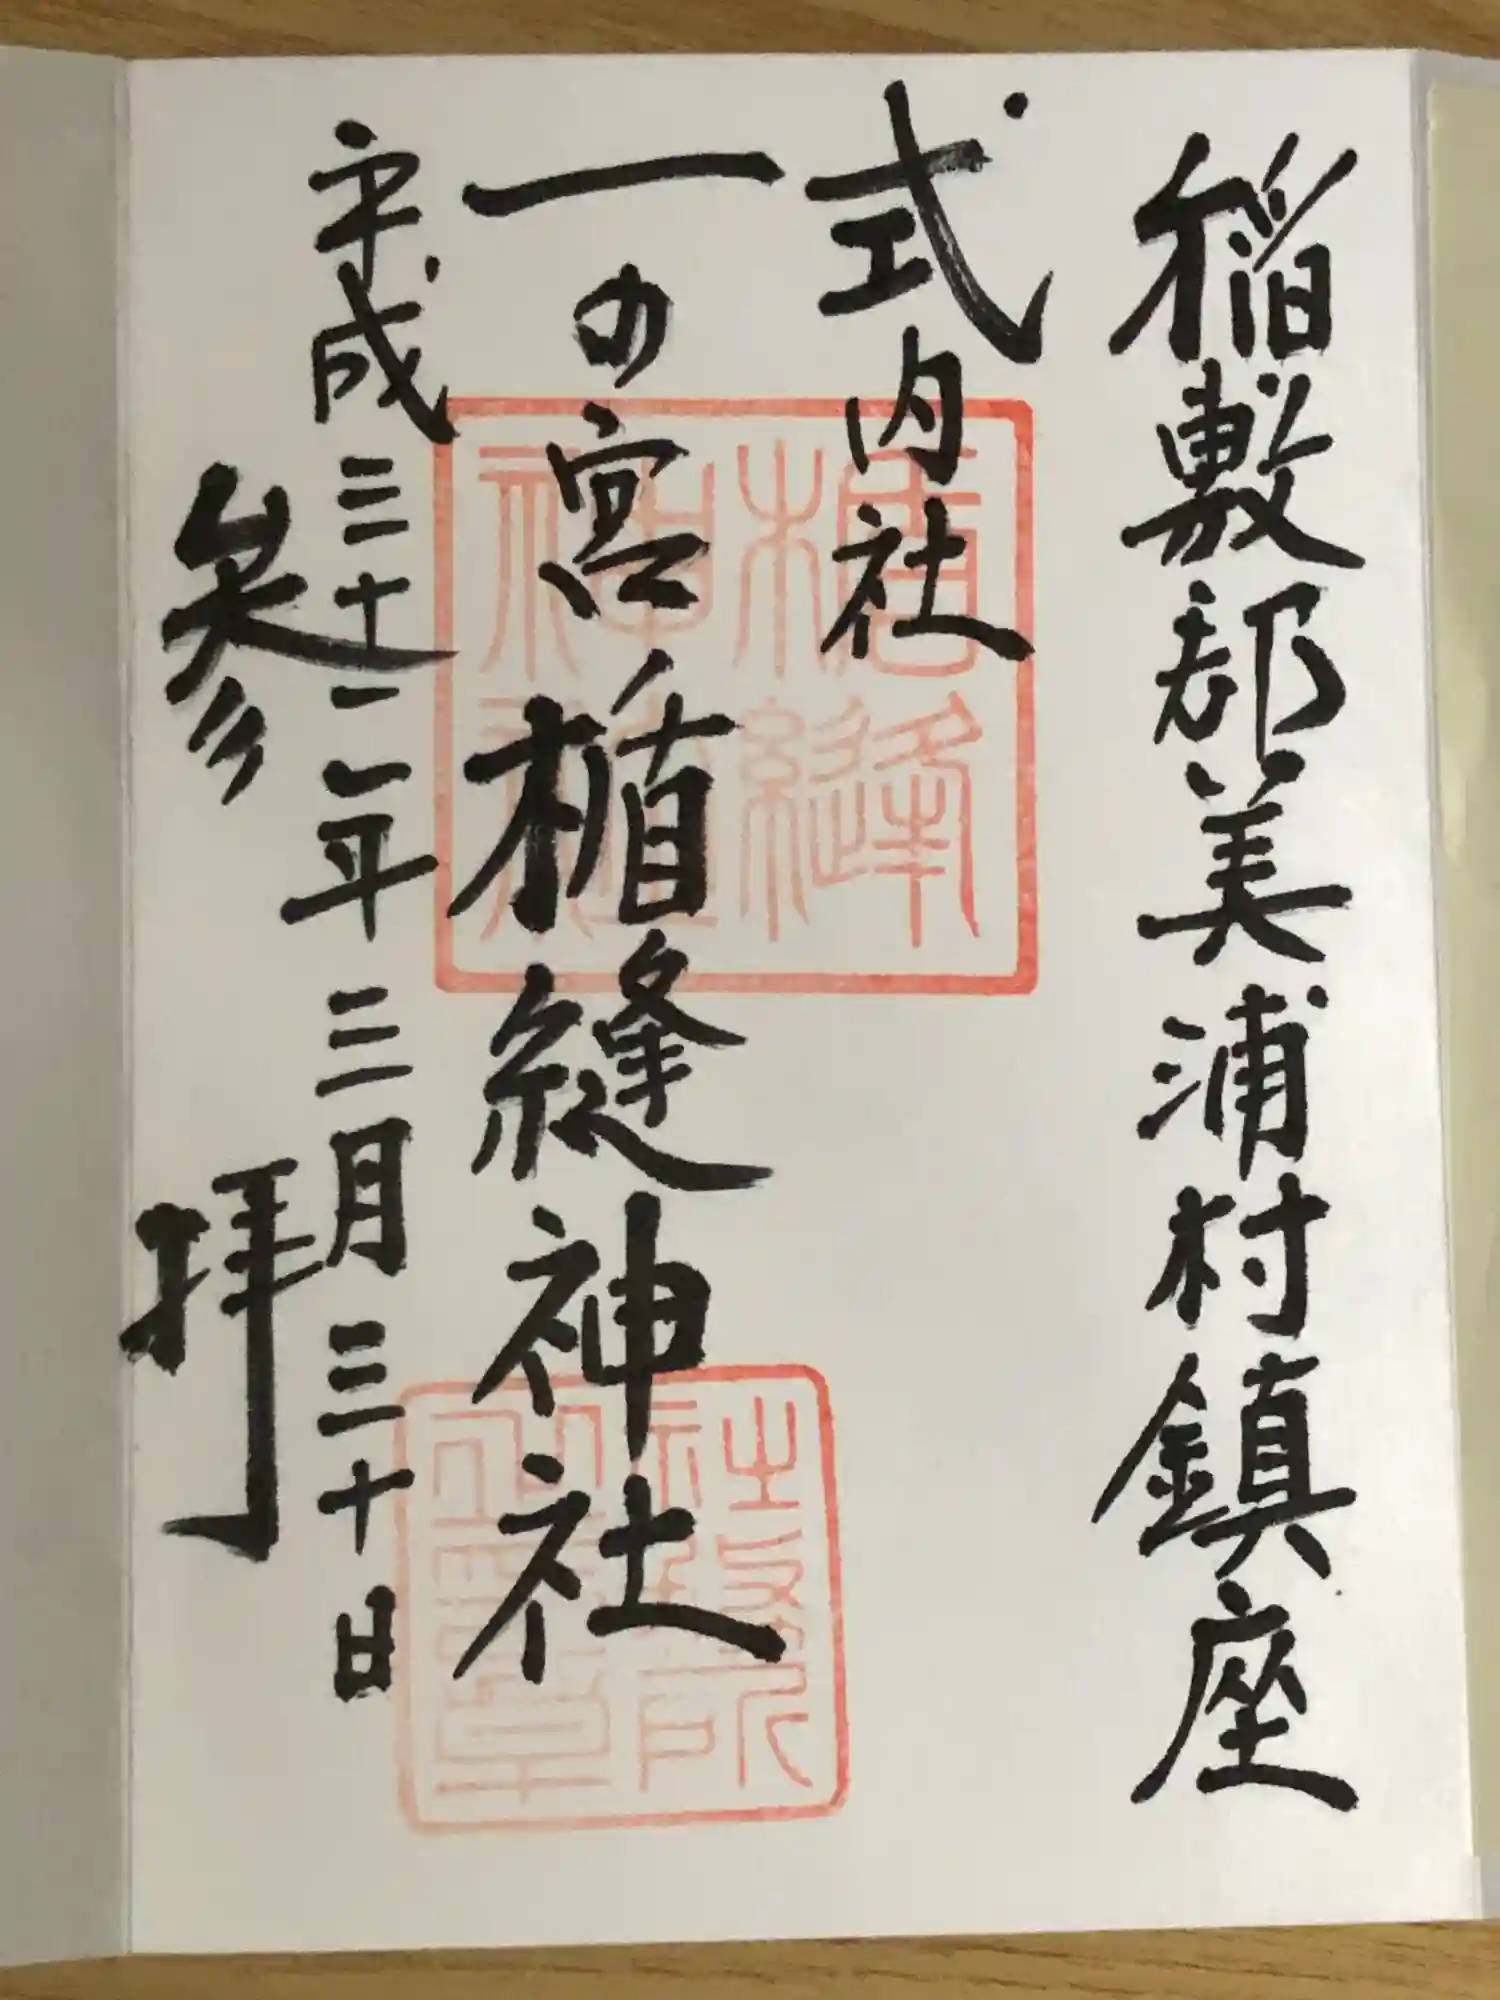 稲敷郡美浦村鎮座
式内社
一の宮 楯縫神社
平成三十一年三月三十日
参拝
楯縫
神社
社務所